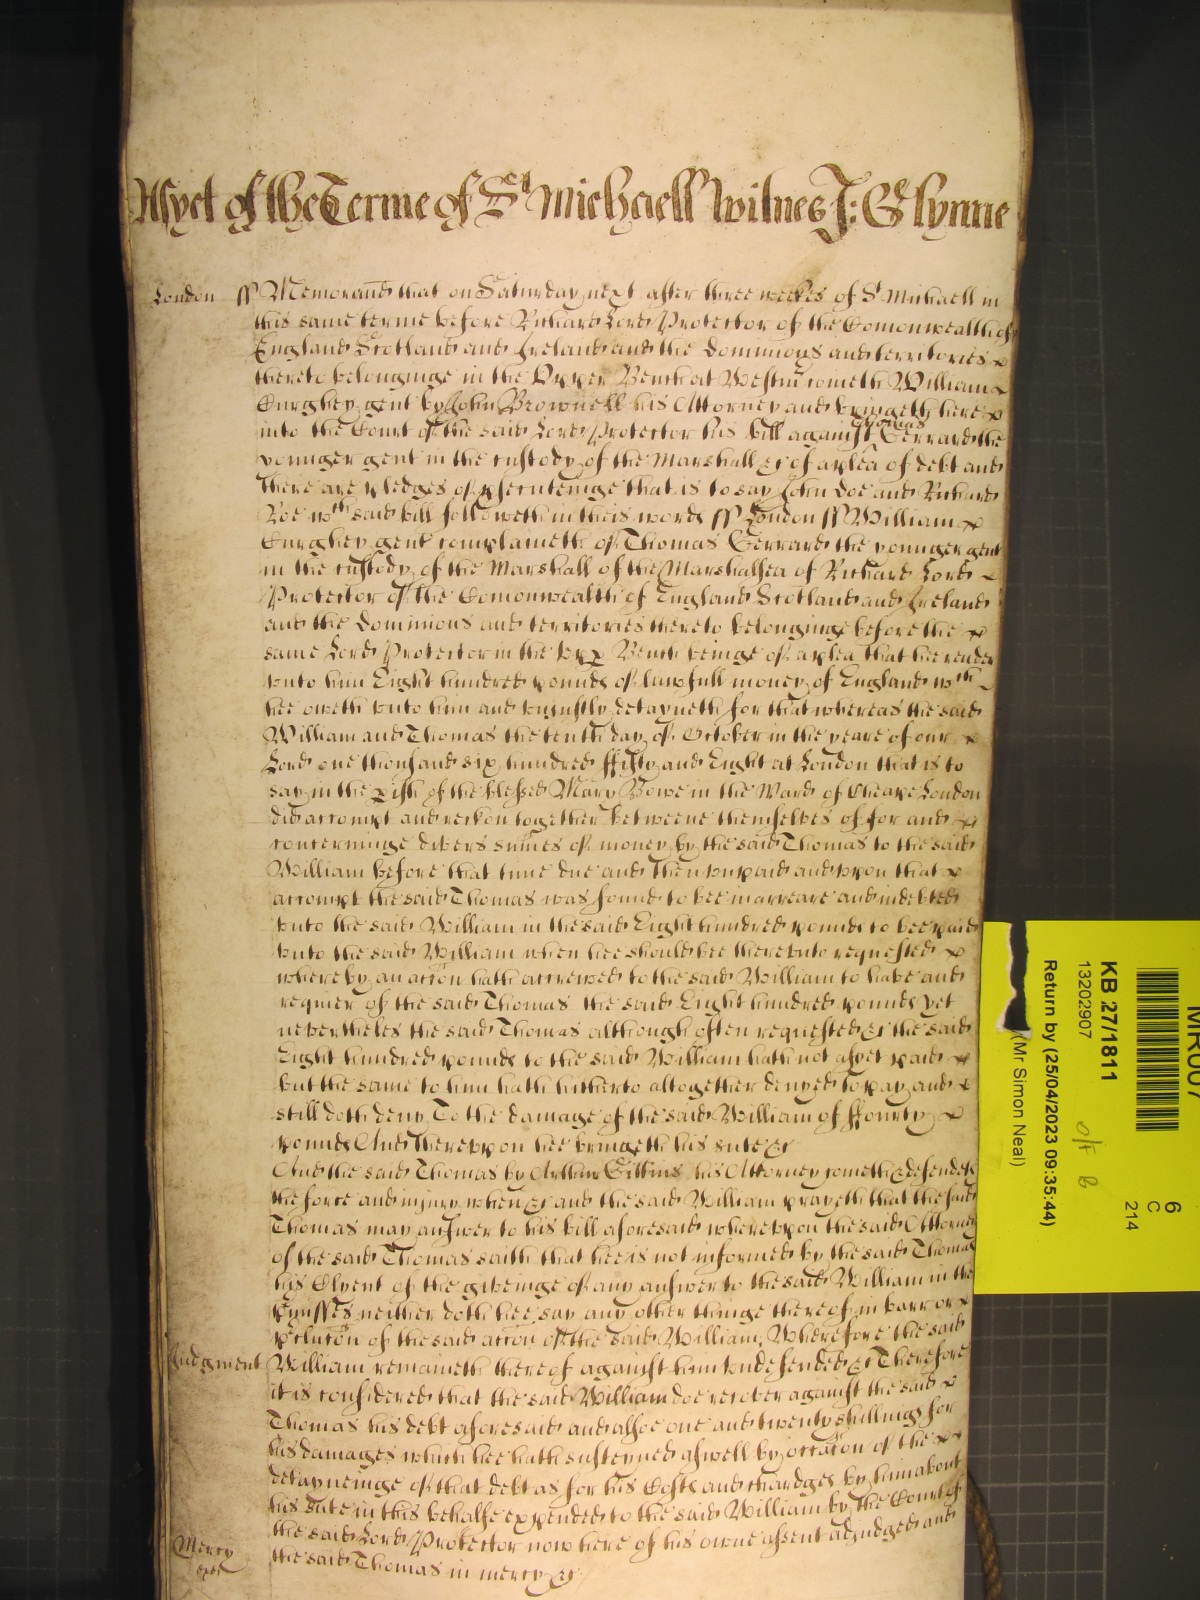 Asyet of the Terme of St Michaell Witnes J: Glynne
London ss Memorand that on Saturday next after three weekes of St Michaell in
this same terme before Richard Lord Protector of the Comonwealth of
England Scotland and Ireland and the Dominions and territories
thereto belonginge in the Upper Bench at Westm cometh William
Curghey gent by John Brownell his Attorney and bringeth here
into the Court of the said Lord Protector his bill against Thomas Gerrard the
younger gent in the custody of the Marshall &c of a plea of debt and
there are pledges of prsecuteinge that is to say John Doe and Richard
Roe wch said bill followeth in theis words ss London ss William
Curghey gent complaineth of Thomas Gerrard the younger gent
in the custody of the Marshall of the Marshalsea of Richard Lord
Protector of the Comonwealth of England Scotland and Ireland
and the Dominions and territories thereto belonginge before the
same Lord Protector in the upp Bench beinge of a plea that hee render
unto him Eight hundred pounds of lawfull money of England wch
hee oweth unto him and unjustly detayneth for that whereas the said
William and Thomas the tenth day of October in the yeare of our
Lord one thousand six hundred ffifty and Eight at London that is to
say in the pish of the blessed Mary Bowe in the Ward of Cheape London
did accompt and reckon together betweene themselves of for and
concerninge divers summes of money by the said Thomas to the said
William before that time due and then unpaid and upon that
accompt the said Thomas was found to bee in arreare and indebted
unto the said William in the said Eight hundred pounds to bee paid
unto the said William when hee should bee thereunto requested
whereby an accon hath accrewed to the said William to have and
requier of the said Thomas the said Eight hundred pounds yet
neverthelesse the said Thomas although often requested &c the said
Eight hundred pounds to the said William hath not asyet paid
but the same to him hath hitherto altogether denyed to pay and
still doth deny To the damage of the said William of ffourty
pounds And thereupon hee bringeth his sute &c
And the said Thomas by Arthur Gittins his Attorney cometh & defendeth
the force and injury when &c and the said William prayeth that the said
Thomas may answer to his bill aforesaid whereupon the said Attorney
of the said Thomas saith that hee is not informed by the said Thomas
his Clyent of the giveinge of any answer to the said William in the
pmisses neither doth hee say any other thinge thereof in barr or
pclucon of the said accon of the said William, Wherefore the said
Judgment William remaineth thereof against him undefended &c Therefore
it is considered that the said William doe recover against the said
Thomas his debt aforesaid and alsoe one and twenty shillings for
his damages which hee hath susteyned aswell by occacon of the
detayneinge of that debt as for his Costs and chardges by him about
his sute in this behalfe expended to the said William by the Court of
the said Lord Protector now here of his owne assent adjudged and
Mercy the said Thomas in mercy &c
MR007
6
C
214
KB 27/1811
13202907
Return by (25/04/2023 09:35:44)
(Mr Simon Neal)